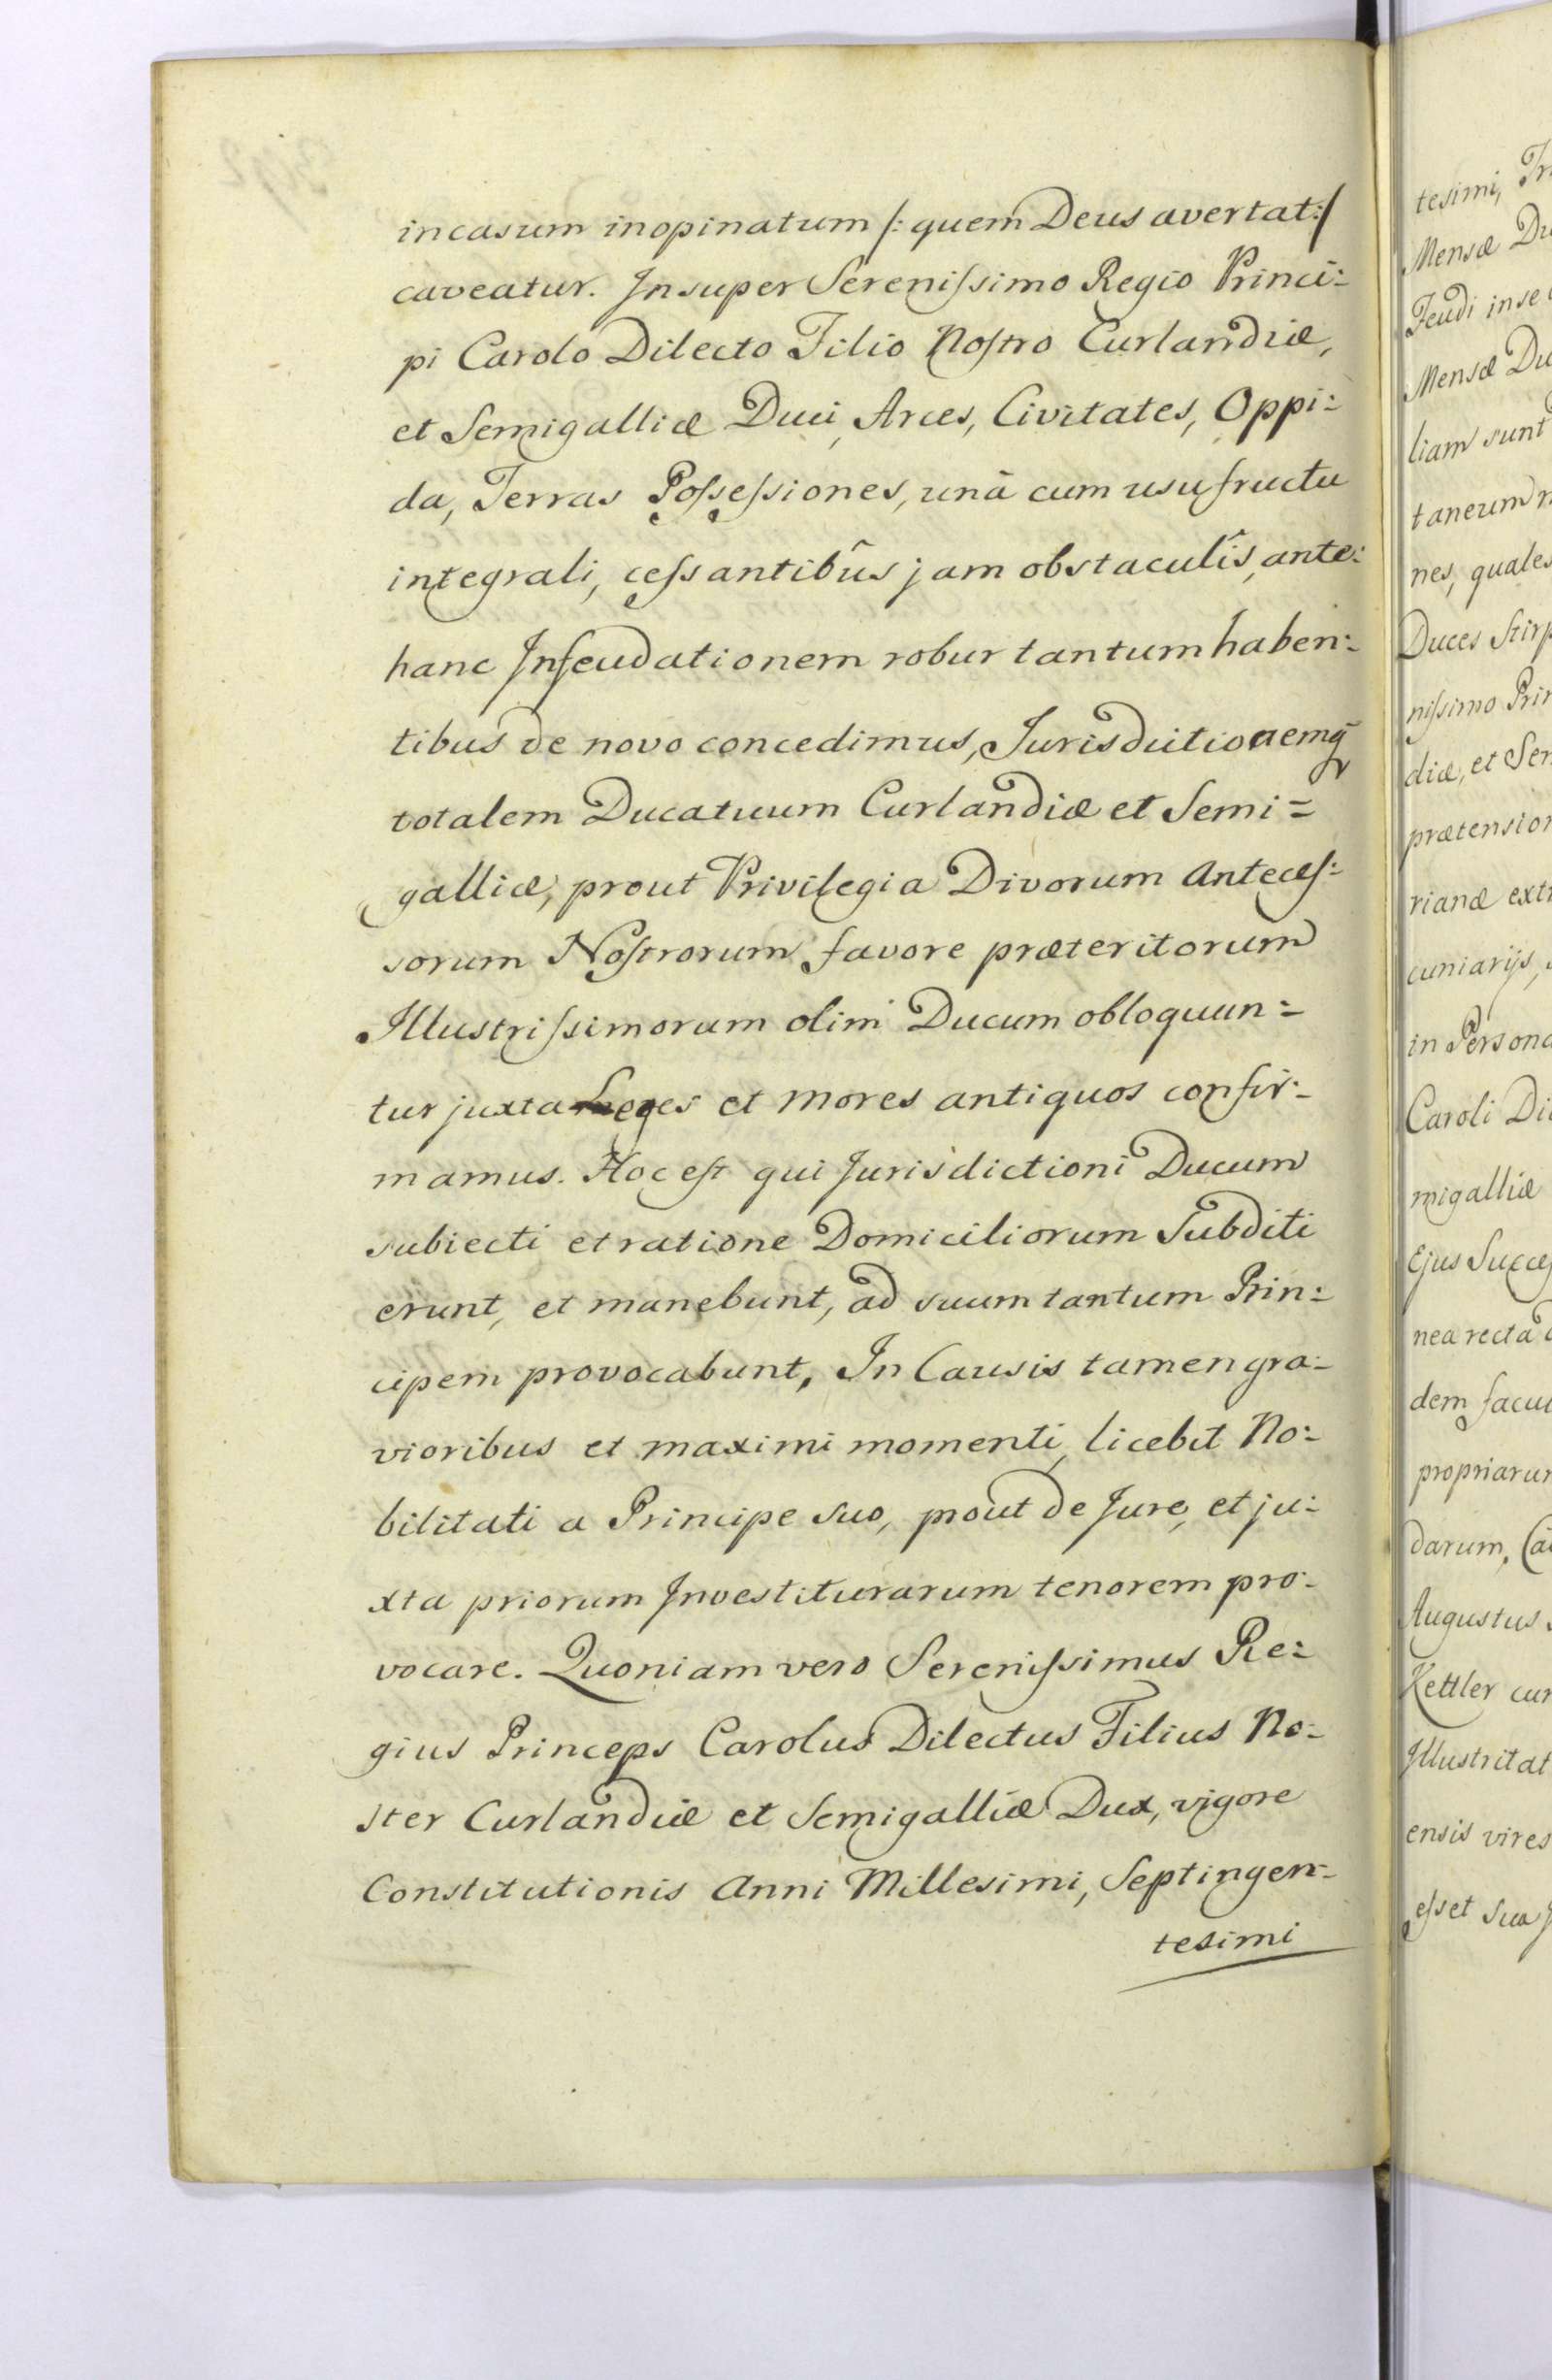 in casum inopinatum /: quem Deus avertat :/
caveatur. Insuper Serenissimo Regio Princi:
pi Carolo Dilecto Filio Nostro Curlandiæ,
et Semigalliæ Duci, Arces, Civitates, Oppi:
da, Terras Possessiones, unà cum usufructu
integrali, cessantibûs jam obstaculîs, ante:
hanc Infeudationem robur tantum haben:
tibus de novo concedimus, Jurisdictionemq̃
totalem Ducatuum Curlandiæ et Semi=
galliæ, prout Privilegia Divorum Anteces:
sorum Nostrorum favore præteritorum
Illustrissimorum olim Ducum obloquun=
tur juxta Leges et mores antiquos confir:
mamus. Hoc est qui Jurisdictioni Ducum
subiecti et ratione Domiciliorum Subditi
erunt, et manebunt, ad suum tantum Prin:
cipem provocabunt, In Causis tamen gra:
vioribus et maximi momenti, licebit No:
bilitati a Principe suo, prout de Jure, et ju:
xta priorum Investiturarum tenorem pro:
vocare. Quoniam vero Serenissimus Re:
gius Princeps Carolus Dilectus Filius No:
ster Curlandiæ et Semigalliæ Dux, vigore
Constitutionis Anni Millesimi, Septingen:
tesimi
tesimi,
Mensæ
Feudi inse
Mensæ
liam sunt
taneum
nes, quales
Duces Stirp
nissimo Prin
diæ, et Sem
prætension
rianæ extr
cuniarijs,
in Persona
Caroli
migalliæ
Ejus Succes
nea recta
dem facul
propriarum
darum,
Augustus
Kettler cum
Illustritat
ensis vires
esset sua